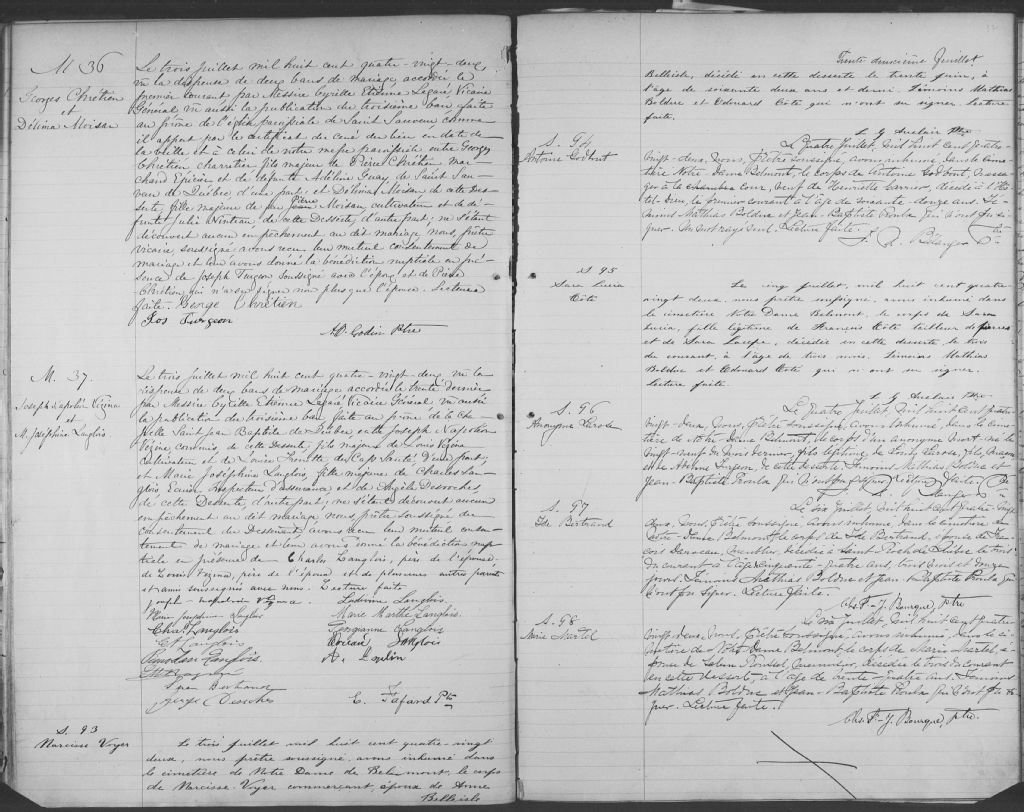 M 36
Georges Chrétien
et
Délima Moisan
Le trois juillet mil huit cent quatre-vingt-deux
vu la dispense de deux bans de mariage accordée le
premier courant par Messire Cyrille Etienne Légaré Vicaire
Général vu aussi la publication du troisième ban faite
au prône de l'église paroissiale de Saint Sauveur comme
il appert par le certificat du curé du lieu en date de
la veille et à celui de notre messe paroissiale entre Georges
Chrétien, charretier fils majeur de Pierre Chrétien mar-
chand Epicier et de defunte Adéline Guay de Saint Sau-
veur de Québec d'une part; et Délima Moisan de cette Des-
serte, fille majeure de feu Pierre Moisan cultivateur et de dé-
funte Julie Nadeau de cette Desserte, d'autre part; ne s'étant
découvert aucun empêchement au dit mariage nous, prêtre
vicaire, soussigné avons reçu leur mutuel consentement de
mariage et leur avons donné la bénédiction nuptiale en pré-
sence de Joseph Turgeon soussigné avec l'époux et de Pierre
Chrétien qui n'a su signer non plus que l'épouse. Lecture
faite. George Chrétien
Jos Turgeon
Ad. Godin Ptre
M. 37.
Joseph Napoléon Vézina
et
M. Joséphine Langlois
Le trois juillet mil huit cent quatre-vingt-deux vu la
dispense de deux bans de mariage accordée le trente dernier
par Messire Cyrille Etienne Légaré Vicaire Général vu aussi
la publication du troisième ban faite au prône de la Cha-
pelle Saint Jean Baptiste de Québec entre Joseph Napoléon
Vézina, commis, de cette Desserte, fils majeur de Louis Vézina
cultivateur et de Louise Frenette du Cap Santé, d'une part;
et Marie Joséphine Langlois, fille majeure de Charles Lan-
glois, Ecuier, Inspecteur d'assurance et de Angèle Desroches,
de cette Desserte, d'autre part; ne s'étant découvert aucun
empêchement au dit mariage nous prêtre soussigné du
consentement du Desservant, avons reçu leur mutuel consen-
tement de mariage et leur avons donné la bénédiction nup-
tiale en présence de Charles Langlois, père de l'épouse,
de Louis Vézina, père de l'époux et de plusieurs autres parents
et amis soussignés avec nous. Lecture faite
Joseph Napoléon Vézina. Ludivine Langlois.
Marie Joséphine Langlois Marie Marthe Langlois.
Chas. Langlois Georgianne Langlois
E. Langlois Langlois
Langlois. A.
Bertrand
George Desroches E. Fafard Ptre
S. 93
Narcisse Voyer
Le trois juillet mil huit cent quatre-vingt
deux, nous prêtre soussigné, avons inhumé dans
le cimetière de Notre Dame de Belmont, le corps
de Narcisse Voyer commerçant, époux de Anne
Bellisle
Trente deuxième Feuillet
Bellisle, décédé en cette desserte le trente juin, à
l'age de soixante deux ans et demi. Témoins Mathias
Bolduc et Edouard Coté qui n'ont su signer. Lecture
faite.
L G Auclair Ptre
S. 94
Antoine Godbout
Le Quatre Juillet, Mil huit Cent Quatre
vingt-deux, Nous, Prêtre soussigné, avons inhumé, dans le cime-
tière Notre Dame Belmont, le corps de Antoine Godbout, messa-
ger à la chambre cour, veuf de Henriette Carrier, décédé à l'Hô-
tel-Dieu, le premier courant à l'âge de soixante douze ans. Té-
moins Mathias Bolduc et Jean-Baptiste Proulx qui n'ont su si-
gner. Un mot rayé nul. Lecture faite.
Bélanger Ptre
S 95
Sara Lucia
Côté
Le cinq juillet, mil huit cent quatre
vingt deux, nous prêtre soussigné, avons inhumé dans
le cimetière Notre Dame Belmont, le corps de Sara
Lucia, fille légitime de François Côté tailleur de pierres
et de Sara, décédée en cette desserte, le trois
du courant, à l'age de trois mois. Témoins Mathias
Bolduc et Edouard Coté qui n'ont su signer.
Lecture faite.
L G Auclair Ptre
S. 96
Anonyme Larose
Le Quatre Juillet, Mil huit Cent Quatre
vingt-deux, Nous, Prêtre soussigné, avons inhumé, dans le cime-
tière de Notre-Dame Belmont, le corps d'un anonyme mort-né le
vingt-neuf du mois dernier, fils légitime de Louis Larose,
et de, de cette desserte. Témoins Mathias Bolduc et
Jean-Baptiste Proulx qui n'ont su signer. Lecture faite.
S. 97
Ide Bertrand
Le Six Juillet, Mil huit Cent Quatre-vingt
deux, Nous, Prêtre soussigné, avons inhumé, dans le cimetière de
Notre-Dame Belmont, le corps de Ide Bertrand, épouse de Fran-
çois, meublier, décédée à Saint-Roch de Québec le trois
du courant à l'âge cinquante-quatre ans, trois mois et onze
jours. Témoins Mathias Bolduc et Jean-Baptiste Proulx qui
n'ont su signer. Lecture faite.
Chs. F.-J. Bourque, ptre
S. 98
Marie Martel
Le Six Juillet, Mil huit Cent Quatre-
vingt-deux, Nous, Prêtre soussigné, avons inhumé, dans le ci-
metière de Notre Dame Belmont, le corps de Marie Martel, é-
pouse de, menuisier, décédée le trois du courant
en cette desserte, à l'âge de trente-quatre ans. Témoins
Mathias Bolduc et Jean-Baptiste Proulx qui n'ont su si-
gner. Lecture faite.
Chs. F.-J. Bourque, ptre.